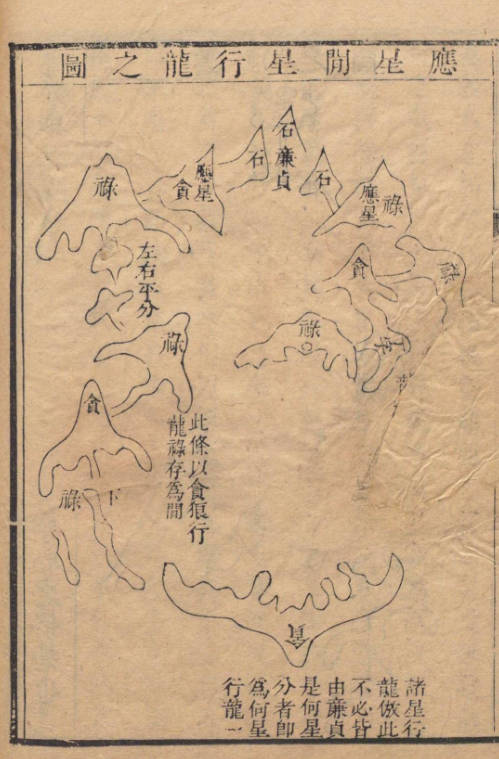 應星間星行龍之圖
石
廉貞
石
石
應星
祿
應星
貪
祿
祿
貪
祿
左右平分
祿
貪
祿
下
此條以貪狼行
龍祿存爲間
貪
諸星行
龍倣此
不必皆
由廉貞
是何星
分者即
爲何星
行龍